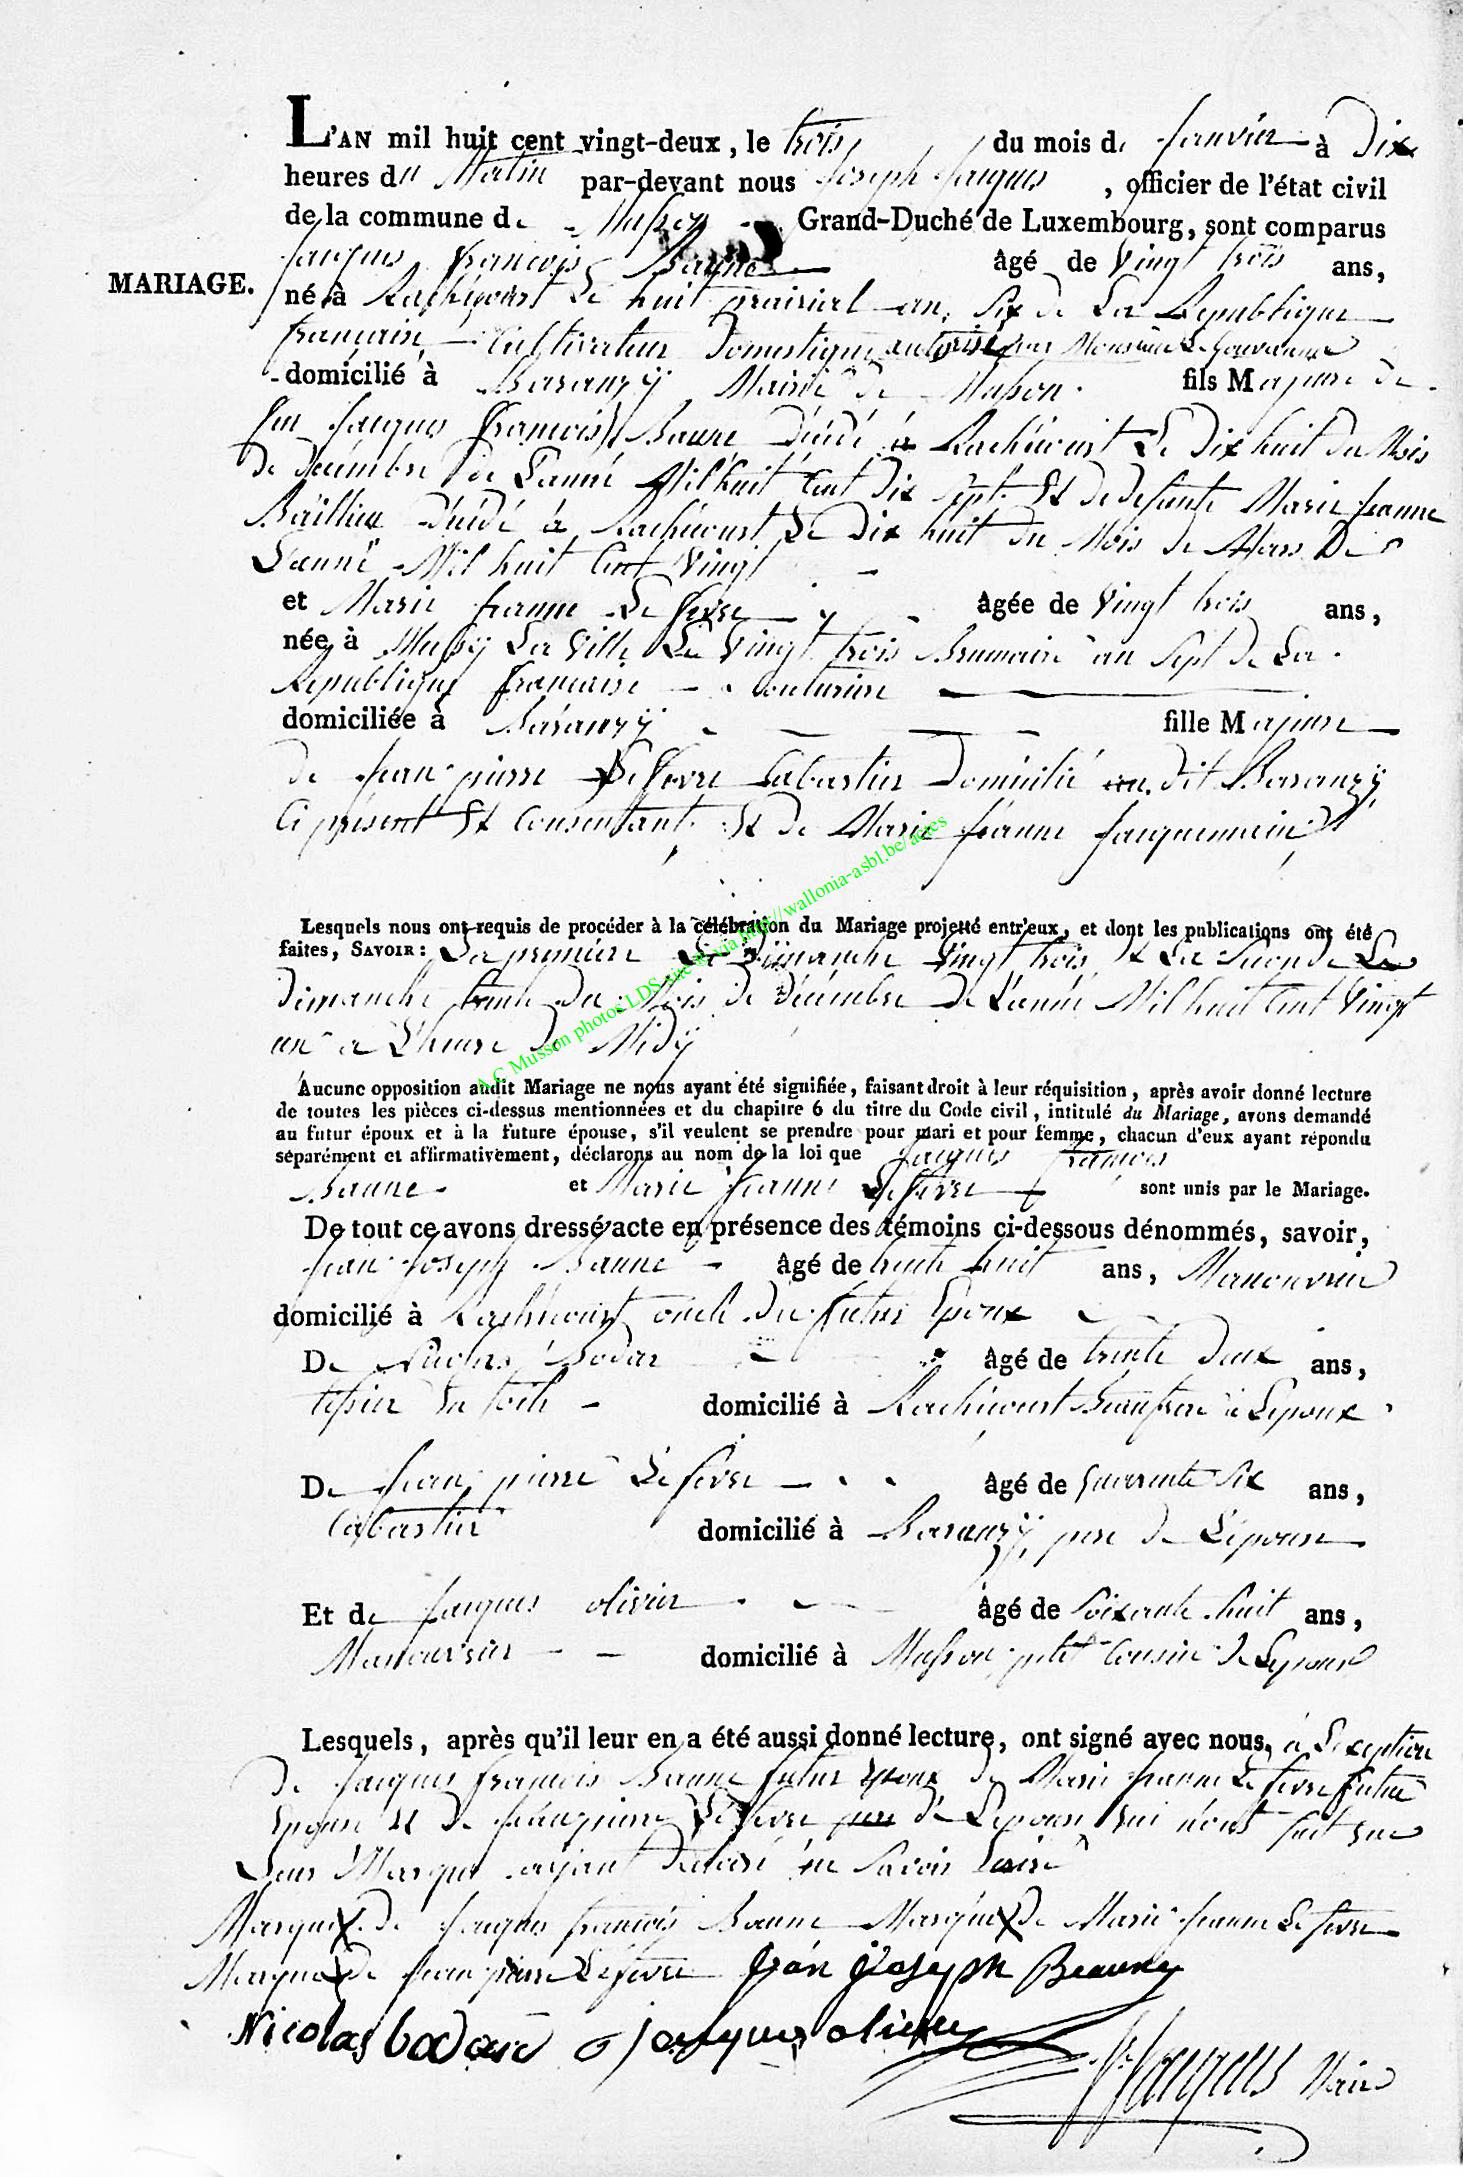 L'AN mil huit cent vingt-deux, le trois du mois de Janvier à Dix
heures du Matin par-devant nous Joseph Jacques, officier de l'état civil
de la commune de Mussy Grand-Duché de Luxembourg, sont comparus
MARIAGE.
Jacques François Baune âgé de Vingt trois ans,
né à Rachecourt Le huit prairial an Six de La Republique
française Cultivateur Domestique autorisé par Monsieur Le Gouverneur
domicilié à Baranzÿ Mairie de Musson fils Majeure de
feu Jacques François Baune Décédé à Rachécourt Le Dix huit Du Mois
De Décémbre De L'année Mil huit Cent Dix Sept Et de defunte Marie Jeanne
Baillieu Décédé à Rachécourt Le Dix huit Du Mois de Mars De
L'année Mil huit Cent Vingt
et Marie Jeanne Le fevre âgée de Vingt trois ans,
née à Mussy La Ville Le Vingt trois Brumaire an Sept De La
Republique française Couturiere
domiciliée à Baranzÿ fille Majeure
de Jean pierre Le fevre Cabartier Domicilié au dit Baranzÿ
Ci présent Et Consentant Et De Marie Jeanne Jacquemain
Lesquels nous ont requis de procéder à la célébration du Mariage projetté entr'eux, et dont les publications ont été
faites, SAVOIR: La première Le Dimanche Vingt trois Et La Seconde Le
Dimanche trente Du Mois De Décémbre De L'année Mil huit Cent Vingt
un à L'heure De Midÿ
Aucune opposition audit Mariage ne nous ayant été signifiée, faisant droit à leur réquisition, après avoir donné lecture
de toutes les pièces ci-dessus mentionnées et du chapitre 6 du titre du Code civil, intitulé du Mariage, avons demandé
au futur époux et à la future épouse, s'il veulent se prendre pour mari et pour femme, chacun d'eux ayant répondu
séparément et affirmativement, déclarons au nom de la loi que Jacques François
Baune et Marie Jeanne Lefevre sont unis par le Mariage.
De tout ce avons dressé acte en présence des témoins ci-dessous dénommés, savoir,
Jean Joseph Baune âgé de trente huit ans, Manouvrier
domicilié à Rachécourt oncle Du futur Epoux
De Nicolas Bodar âgé de trente Deux ans,
tissier En toile domicilié à Rachécourt Beaufrere à Lepoux
De Jean pierre Lefevre âgé de Quarante Six ans,
Cabartier domicilié à Baranzÿ pere De L'épouse
Et de Jacques olivier âgé de Soixante huit ans,
Manouvrier domicilié à Musson petit Cousin de Lepoux
Lesquels, après qu'il leur en a été aussi donné lecture, ont signé avec nous, à Lexeption
De Jacques François Baune futur Epoux De Marie Jeanne Le fevre future
Epouse Et De Jean pierre Lefevre pere de Lepouse qui n'ont fait que
Leur Marque ayant Déclaré ne Savoir Ecrire
Marque X de Jacques François Baune Marque X De Marie Jeanne Lefevre
Marque X De Jean pierre Lefevre Jean Joseph Beaune
Nicolas bodard jacques olivier
Jacques Maire
A.C Musson photos LDS via http://wallonia-asbl.be/actes